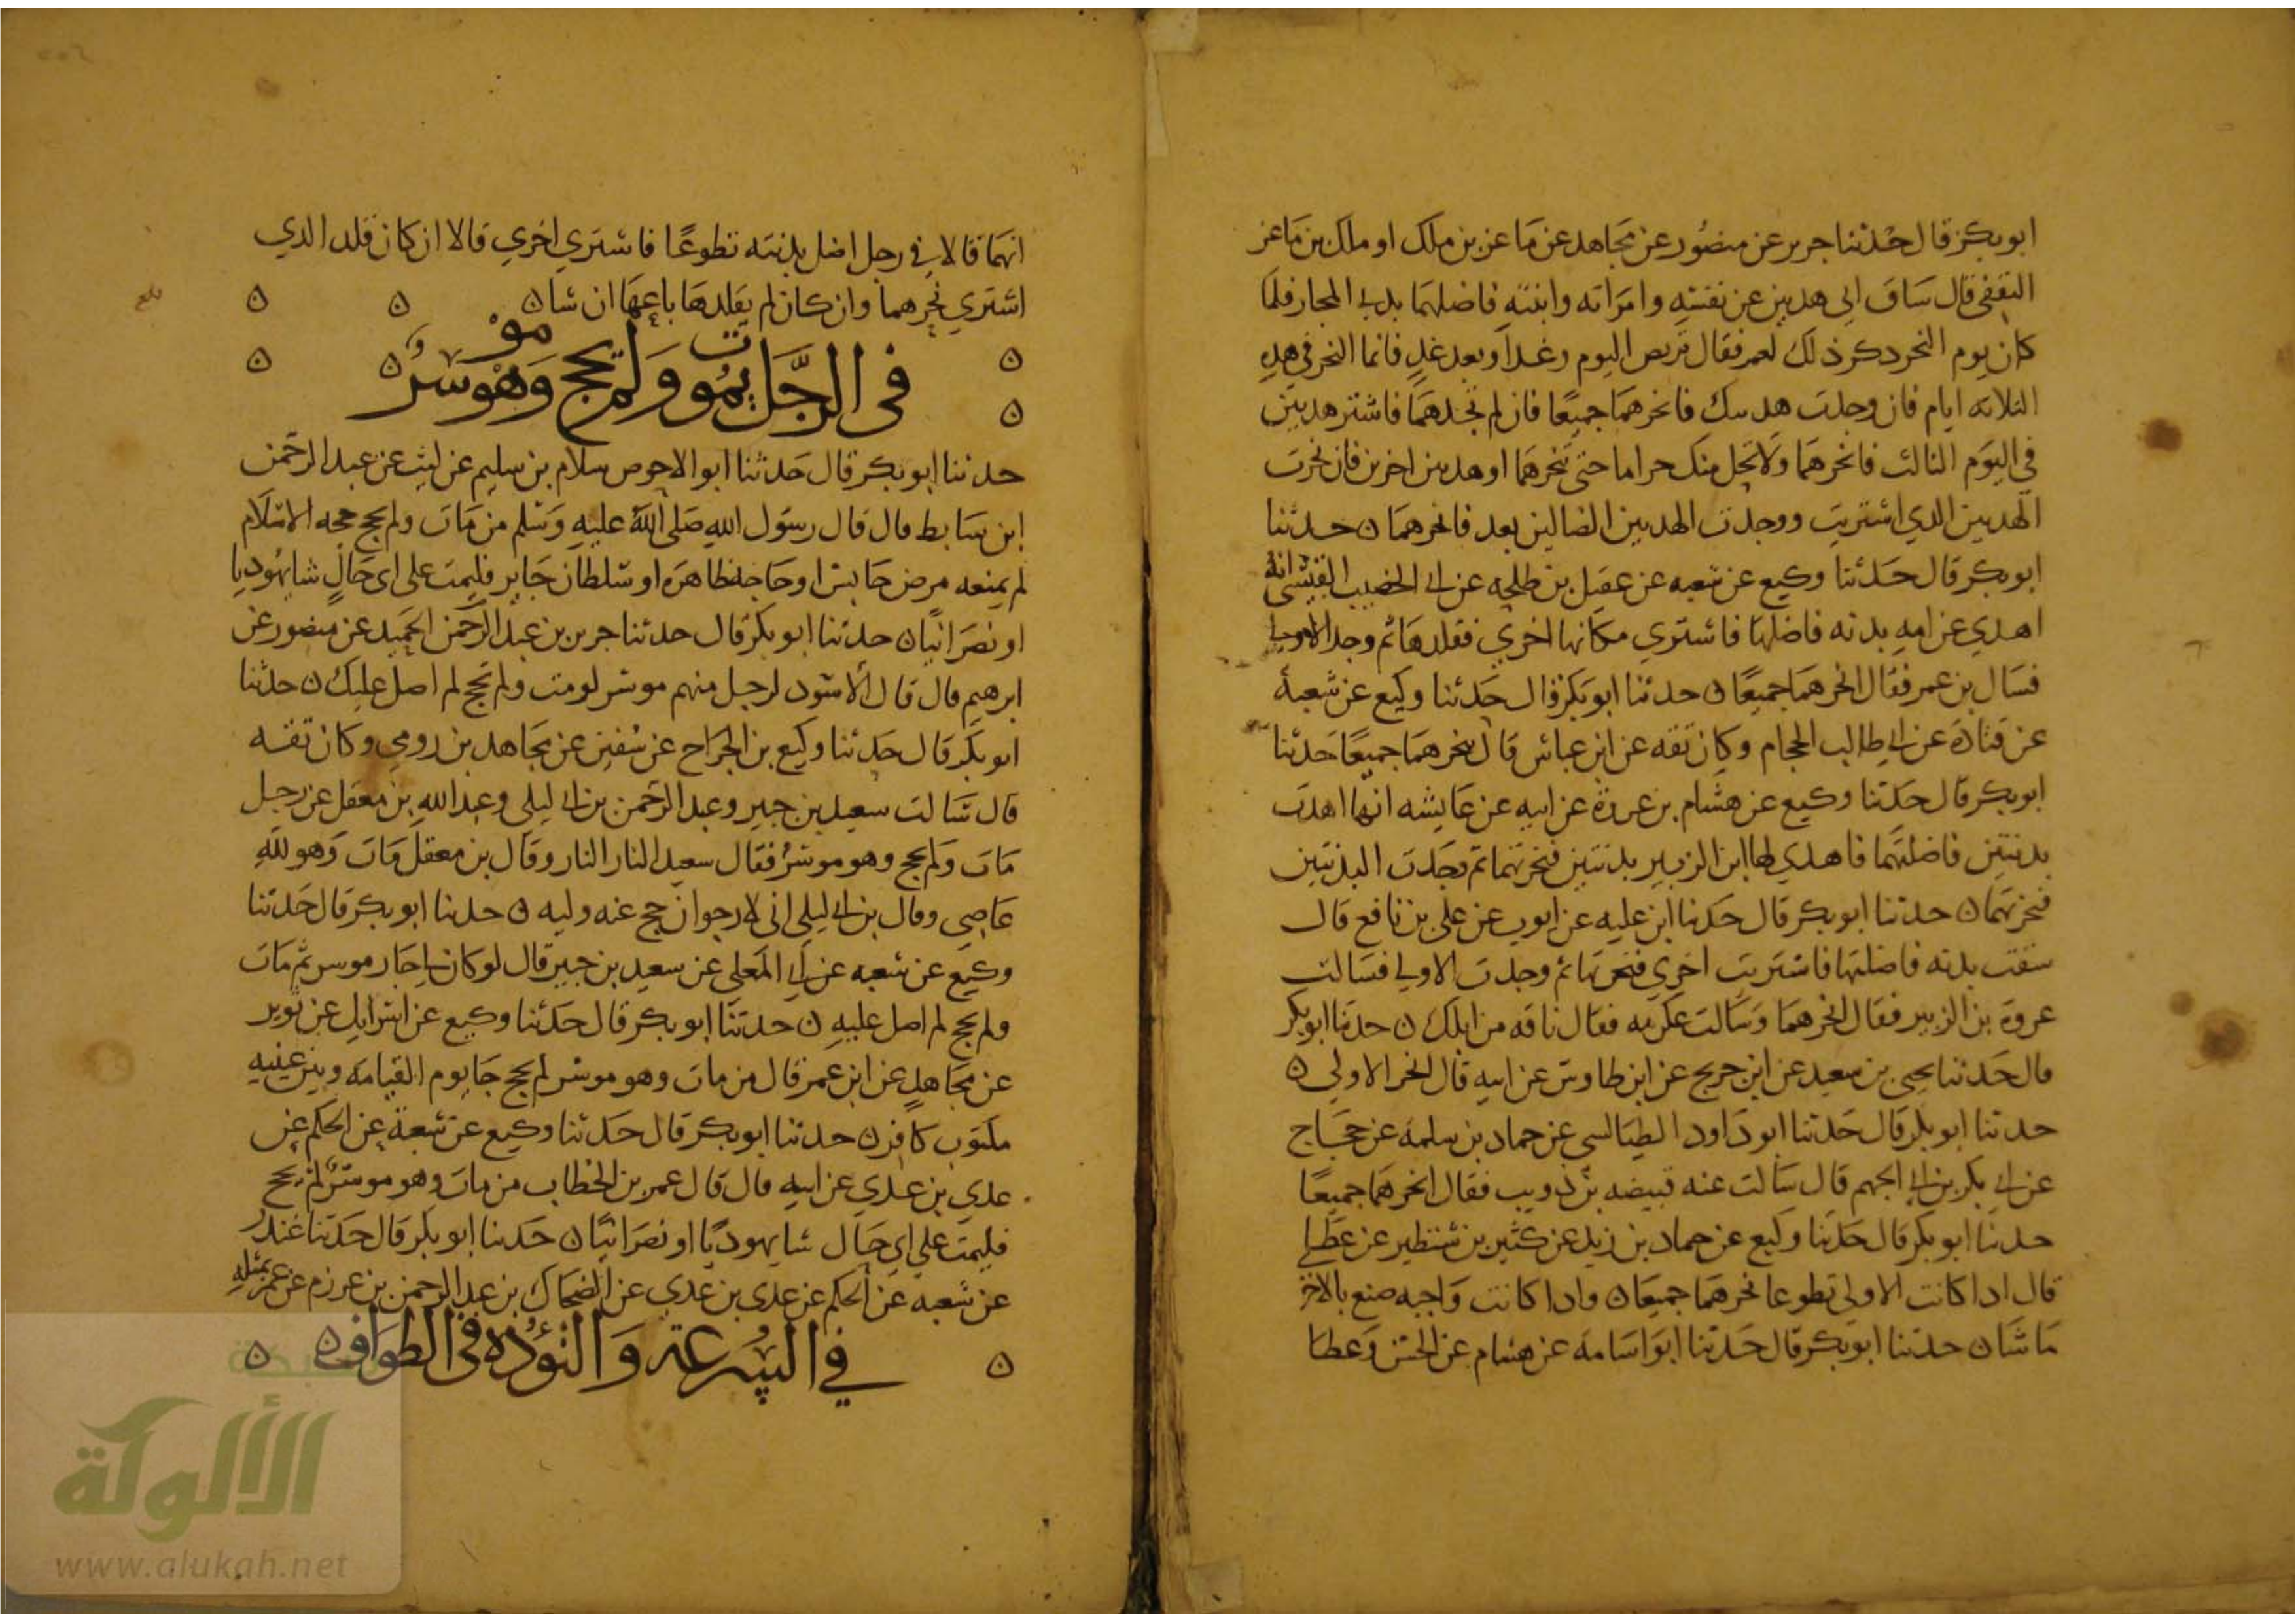 ابو بكر قال حدثنا جرير عن منصور عن مجاهد عن ماعز بن ملك او ملك بن ماعز
الثقفي قال ساق ابي هديين عن نفسه وامراته وابنته فاضلهما بذي المجاز فلما
كان يوم النحر ذكر ذلك لعمر فقال تربص اليوم وغدا وبعد غد فانما النحر في هذه
الثلاثة ايام فان وجدت هدييك فانحرهما جميعا فان لم تجدهما فاشتر هديين
في اليوم الثالث فانحرهما ولا تحل منك حراما حتى تنحرهما او هديين اخرين فان نحرت
الهديين الذي اشتريت ووجدت الهديين الضالين بعد فانحرهما ن حدثنا
ابو بكر قال حدثنا وكيع عن شعبه عن عقيل بن طلحه عن ابي الخصيب القيسي انه
اهدي عن امه بدنه فاضلها فاشتري مكانها اخري فقلدها ثم وجد الاولي
فسال بن عمر فقال انحرهما جميعا ن حدثنا ابو بكر قال حدثنا وكيع عن شعبة
عن قتادة عن ابي طالب الحجام وكان ثقه عن ابن عباس قال ينحرهما جميعا حدثنا
ابو بكر قال حدثنا وكيع عن هشام بن عروة عن ابيه عن عايشه انها اهدت
بدنتين فاضلتهما فاهدي لها ابن الزبير بدنتين فنحرتهما ثم وجدت البدنتين
فنحرتهما ن حدثنا ابو بكر قال حدثنا ابن عليه عن ايوب عن علي بن نافع قال
سقت بدنه فاضلتها فاشتريت اخري فنحرتها ثم وجدت الاولي فسالت
عروة بن الزبير فقال انحرهما وسالت عكرمه فقال ناقه من ابلك ن حدثنا ابو بكر
قال حدثنا يحيى بن سعيد عن ابن جريج عن ابن طاوس عن ابيه قال انحر الاولي ن
حدثنا ابو بكر قال حدثنا ابو داود الطيالسي عن حماد بن سلمة عن حجاج
عن ابي بكر بن ابي الجهم قال سالت عنه قبيصه بن ذويب فقال انحرهما جميعا
حدثنا ابو بكر قال حدثنا وكيع عن حماد بن زيد عن كثير بن شنظير عن عطا
قال اذا كانت الاولي تطوعا نحرهما جميعا ن واذا كانت واجبه صنع بالاخر
ما شا ن حدثنا ابو بكر قال حدثنا ابو اسامة عن هشام عن الحسن وعطا
انهما قالا في رجل اضل بدنته تطوعا فاشتري اخري قالا ان كان قلد الذي
اشتري نحرهما وان كان لم يقلدها باعها ان شا ن
في الرجل يموت ولم يحج وهو موسر
حدثنا ابو بكر قال حدثنا ابو الاحوص سلام بن سليم عن ليث عن عبد الرحمن
ابن سابط قال قال رسول الله صلى الله عليه وسلم من مات ولم يحج حجه الاسلام
لم يمنعه مرض حابس او حاجة ظاهرة او سلطان جاير فليمت على اى حال شا يهوديا
او نصرانيا ن حدثنا ابو بكر قال حدثنا جرير بن عبد الرحمن الحميد عن منصور عن
ابرهيم قال قال الاسود لرجل منهم موسر لو مت ولم تحج لم اصل عليك ن حدثنا
ابو بكر قال حدثنا وكيع بن الجراح عن سفين عن مجاهد بن رومي وكان ثقه
قال سالت سعيد بن جبير وعبد الرحمن بن ابي ليلي وعبد الله بن معقل عن رجل
مات ولم يحج وهو موسر فقال سعيد النار النار وقال بن معقل مات وهو لله
عاصي وقال بن ابي ليلي اني لارجو ان حج عنه وليه ن حدثنا ابو بكر قال حدثنا
وكيع عن شعبه عن ابي المعلي عن سعيد بن جبير قال لو كان لي جار موسر ثم مات
ولم يحج لم اصل عليه ن حدثنا ابو بكر قال حدثنا وكيع عن اسرايل عن ثوير
عن مجاهد عن ابن عمر قال من مات وهو موسر لم يحج جا يوم القيامة وبين عينيه
مكتوب كافر ن حدثنا ابو بكر قال حدثنا وكيع عن شعبة عن الحكم عن
عدي بن عدي عن ابيه قال قال عمر بن الخطاب من مات وهو موسر لم يحج
فليمت علي اي حال شا يهوديا او نصرانيا ن حدثنا ابو بكر قال حدثنا غندر
عن شعبه عن الحكم عن عدى بن عدي عن الضحاك بن عبد الرحمن بن عرزم عن عمر بمثله
في السرعة والتؤده في الطواف ن
بلغ
شبكة
الألوكة
www.alukah.net